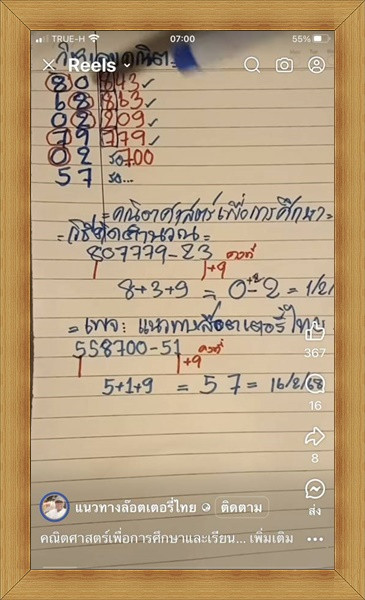 TRUE-H 07:00 55%
Reels
80 843
68 863
02 209
79 779
02 รอ700
57 รอ...
=คณิตศาสตร์เพื่อการศึกษา=
=วิธีคิดคำนวณ=
807779-23
+9 คงที่
8+3+9 = 0-2 = 1/2/
+2
=เพจ: แนวทางล็อตเตอรี่ไทย
558700-51
+9 คงที่
5+1+9 = 57 = 16/2/68
367
16
8
ส่ง
แนวทางล๊อตเตอรี่ไทย ติดตาม
คณิตศาสตร์เพื่อการศึกษาและเรียน... เพิ่มเติม